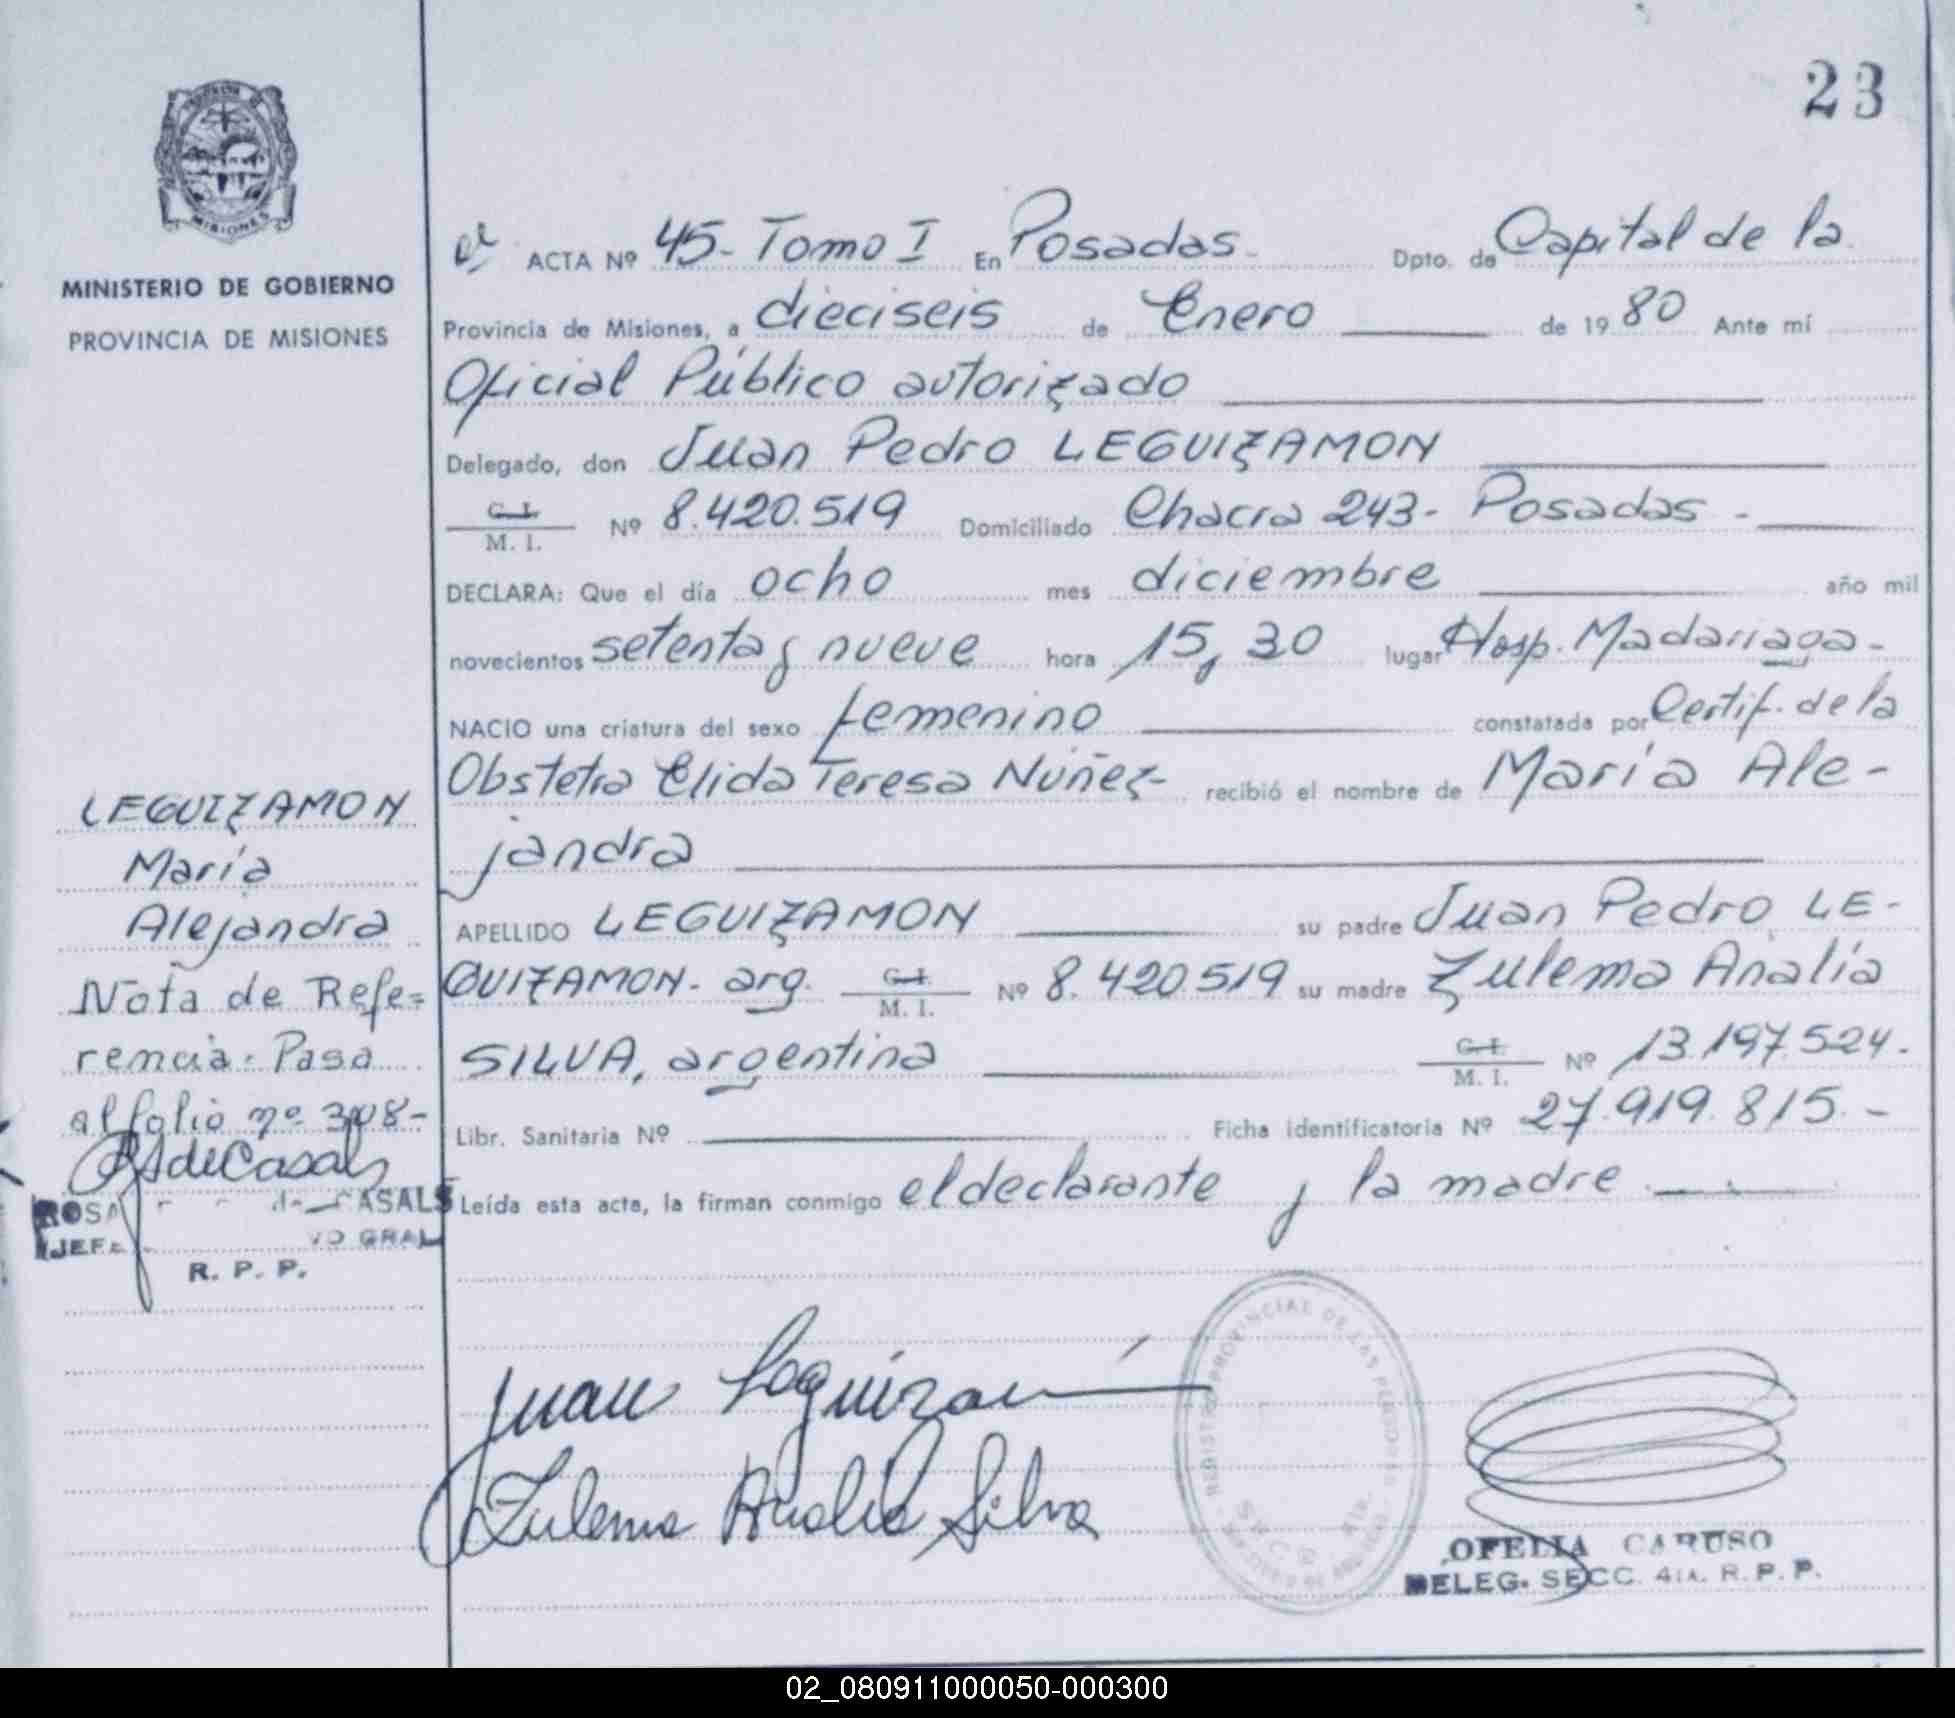 23
MISIONES
MINISTERIO DE GOBIERNO
PROVINCIA DE MISIONES
ACTA Nº 45- Tomo I En Posadas- Dpto. de Capital de la
Provincia de Misiones, a dieciseis de Enero de 1980 Ante mí
Oficial Público autorizado
Delegado, don Juan Pedro LEGUIZAMON
C. I.
M. I. Nº 8.420.519 Domiciliado Chacra 243- Posadas -
DECLARA: Que el día ocho mes diciembre año mil
novecientos setenta y nueve hora 15,30 lugar Hosp. Madariaga-
NACIO una criatura del sexo femenino constatada por Certif. de la
Obstetra Elida Teresa Núñez- recibió el nombre de María Ale-
jandra
APELLIDO LEGUIZAMON su padre Juan Pedro LE-
GUIZAMON- arg. C. I.
M. I. Nº 8.420.519 su madre Zulema Analía
SILVA, argentina C. I.
M. I. Nº 13.197.524.
Libr. Sanitaria Nº Ficha identificatoria Nº 27.919.815.-
Leída esta acta, la firman conmigo el declarante y la madre
LEGUIZAMON
María
Alejandra
Nota de Refe=
rencia: Pasa
al folio nº 308-
deCasals
ROSA de CASALS
JEFE GRAL
R. P. P.
Juan Leguizamón
Zulema Analia Silva
REGISTRO PROVINCIAL DE LAS PERSONAS
OFELIA CARUSO
DELEG. SECC. 4ta. R. P. P.
02_080911000050-000300